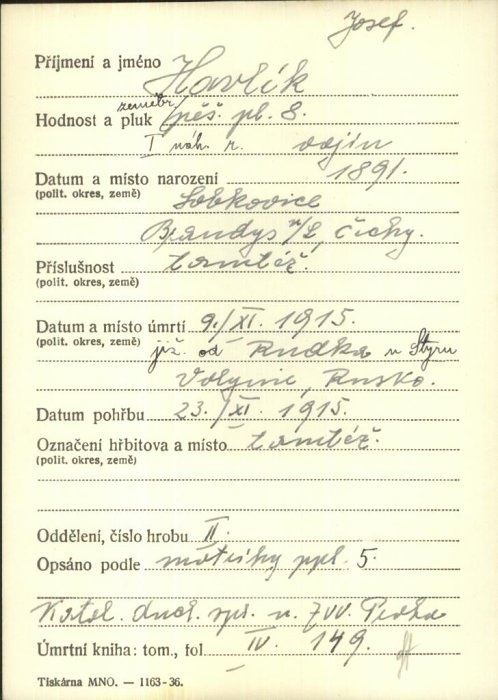 Josef.
Příjmení a jméno Havlík
zeměbr.
Hodnost a pluk pěš. pl. 8.
I náh. r. vojín
Datum a místo narození 1891.
(polit. okres, země) Lobkovice
Brandýs n/L, Čechy.
Příslušnost tamtéž.
(polit. okres, země)
Datum a místo úmrtí 9./XI. 1915.
(polit. okres, země) již. od Rudka u Styru
Volynie, Rusko.
Datum pohřbu 23./XI. 1915.
Označení hřbitova a místo tamtéž.
(polit. okres, země)
Oddělení, číslo hrobu II
Opsáno podle matriky ppl. 5.
Katol. duch. spr. u ZVV. Praha
Úmrtní kniha: tom., fol IV. 149.
Tiskárna MNO. — 1163-36.